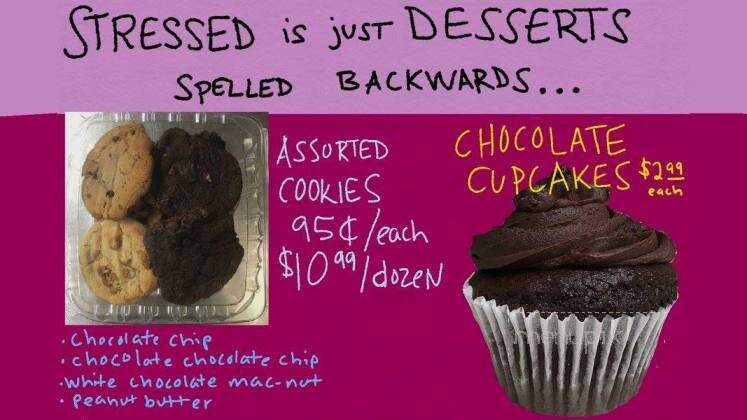 STRESSED is just DESSERTS
SPELLED BACKWARDS...
ASSORTED
COOKIES
95¢/each
$10 99/dozen
CHOCOLATE
CUPCAKES $2 99
each
• Chocolate chip
• chocolate chocolate chip
• white chocolate mac-nut
• Peanut butter